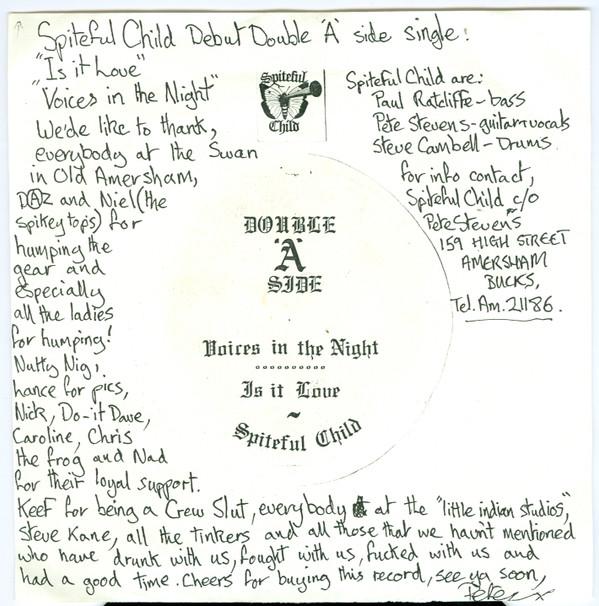 Spiteful Child Debut Double 'A' side single:
"Is it Love"
"Voices in the Night"
We'de like to thank,
everybody at the Swan
in Old Amersham,
DAZ and Niel (the
spikey tops) for
humping the
gear and
especially
all the ladies
for humping!
Nutty Nig,
hance for pics,
Nick, Do-it Dave,
Caroline, Chris
the frog and Nad
for their loyal support.
Keef for being a Crew Slut, everybody at the "little indian studios",
Steve Kane, all the tinkers and all those that we havn't mentioned
who have drunk with us, fought with us, fucked with us and
had a good time. Cheers for buying this record, see ya soon,
Pete x
Spiteful
Child
Spiteful Child are:
Paul Ratcliffe - bass
Pete Stevens - guitar + vocals
Steve Cambell - Drums.
for info contact,
Spiteful Child c/o
Pete Stevens
159 HIGH STREET
AMERSHAM
BUCKS,
Tel. Am. 21186.
DOUBLE
'A'
SIDE
Voices in the Night
Is it Love
~
Spiteful Child